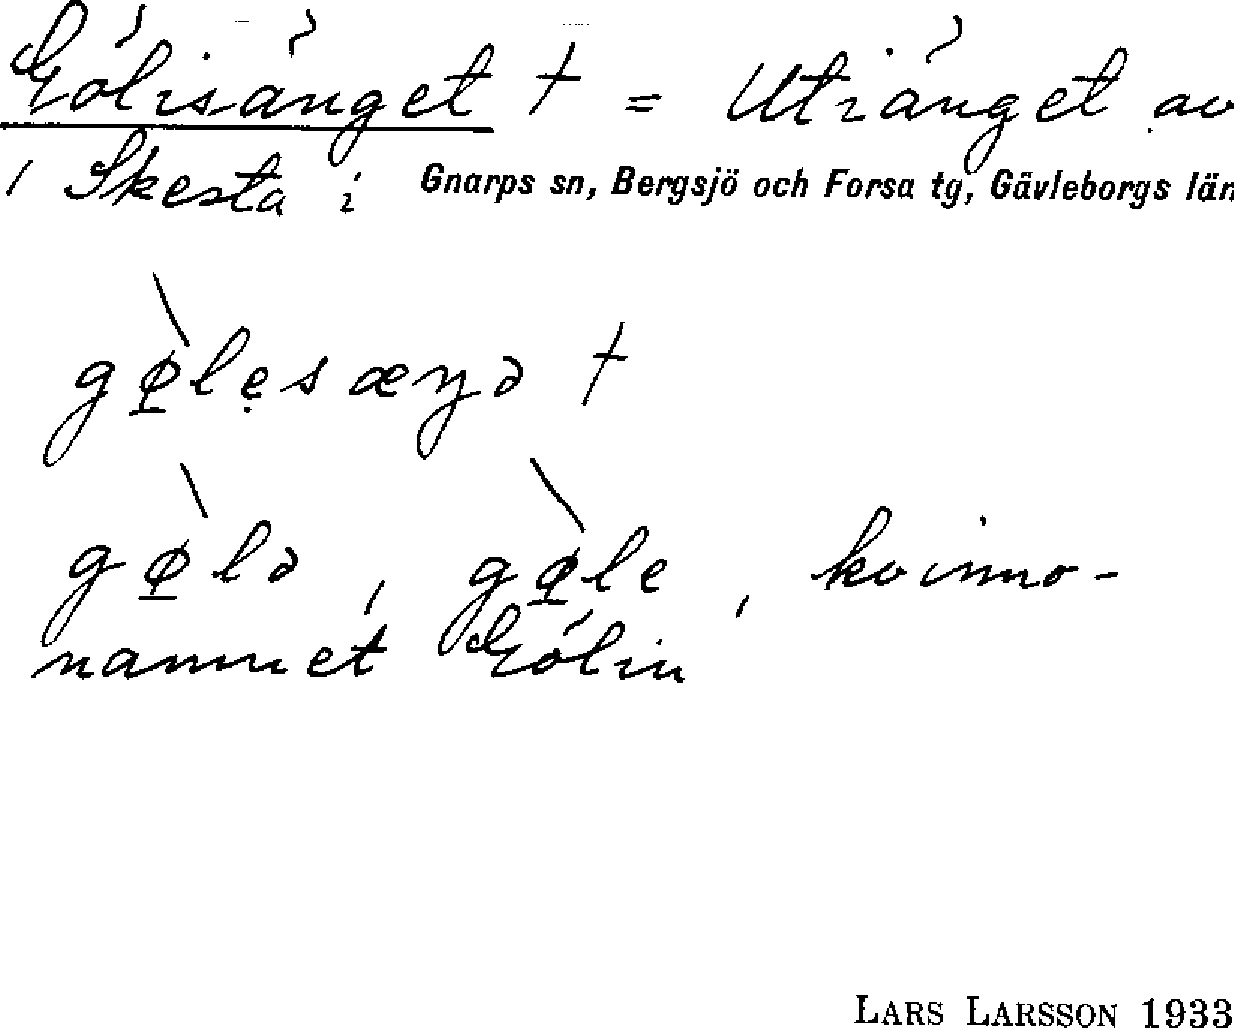 Gölisänget † = Utiänget av
i Skesta i Gnarps sn, Bergsjö och Forsa tg, Gävleborgs län
gø̲̀lẹsæŋə †
gø̲̀lə, gø̲̀le, kvinno-
namnet Gölin
LARS LARSSON 1933